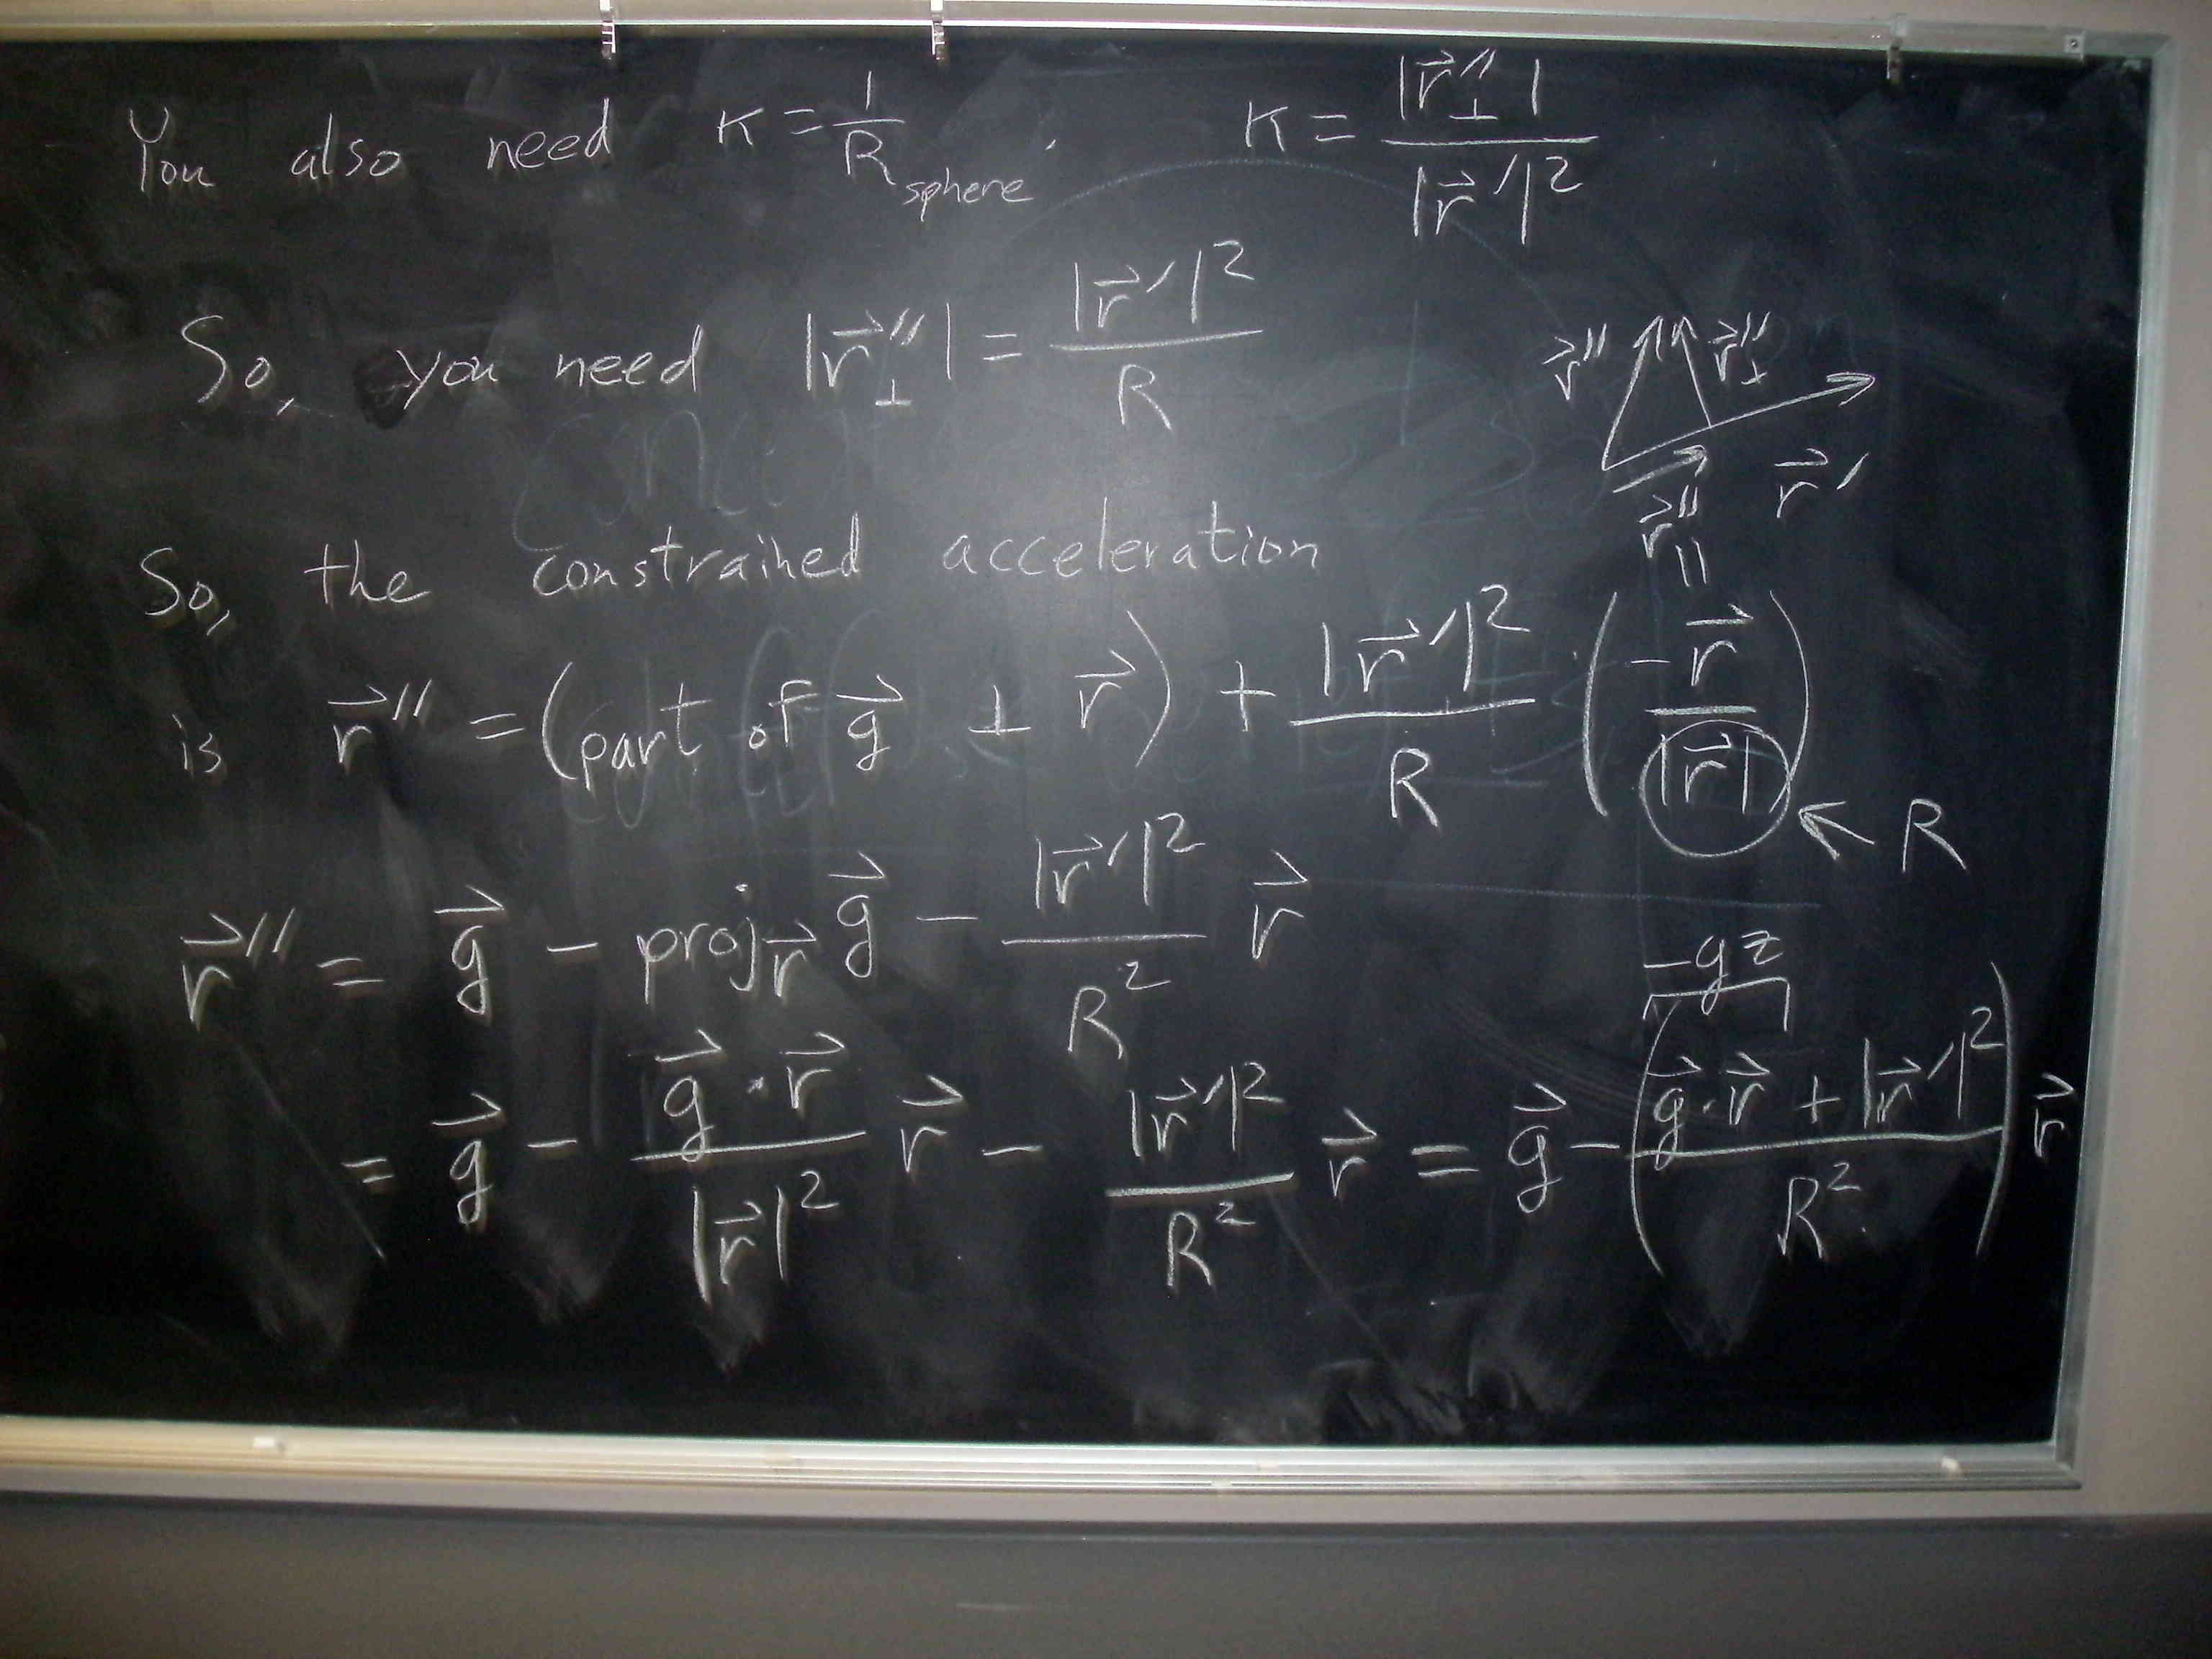 You also need κ = 1/R_sphere. κ = |r⃗″_⊥| / |r⃗′|²
So, you need |r⃗″_⊥| = |r⃗′|² / R
r⃗″ r⃗″_⊥
r⃗′
r⃗″_∥
So, the constrained acceleration
is r⃗″ = (part of g⃗ ⊥ r⃗) + |r⃗′|² / R (−r⃗ / |r⃗|) ← R
r⃗″ = g⃗ − proj_r⃗ g⃗ − |r⃗′|² / R² r⃗
−gz
= g⃗ − g⃗ · r⃗ / |r⃗|² r⃗ − |r⃗′|² / R² r⃗ = g⃗ − (g⃗ · r⃗ + |r⃗′|² / R²) r⃗